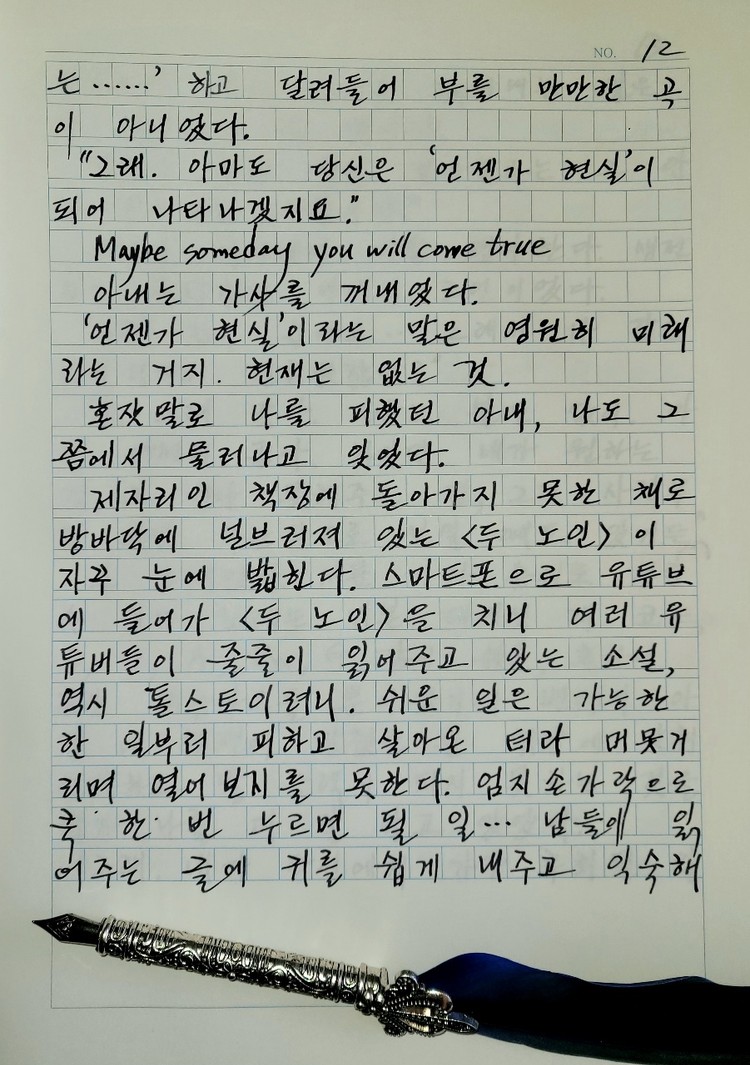 NO. 12
는……' 하고 달려들어 부를 만만한 곡
이 아니었다.
"그래. 아마도 당신은 '언젠가 현실'이
되어 나타나겠지요."
Maybe someday you will come true
아내는 가사를 꺼내었다.
'언젠가 현실'이라는 말은 영원히 미래
라는 거지. 현재는 없는 것.
혼잣말로 나를 피했던 아내, 나도 그
쯤에서 물러나고 있었다.
제자리인 책장에 돌아가지 못한 채로
방바닥에 널브러져 있는 <두 노인>이
자꾸 눈에 밟힌다. 스마트폰으로 유튜브
에 들어가 <두 노인>을 치니 여러 유
튜버들이 줄줄이 읽어주고 있는 소설,
역시 톨스토이려니. 쉬운 일은 가능한
한 일부러 피하고 살아온 터라 머뭇거
리며 열어보지를 못한다. 엄지손가락으로
쿡 한 번 누르면 될 일… 남들에 읽
어주는 글에 귀를 쉽게 내주고 익숙해